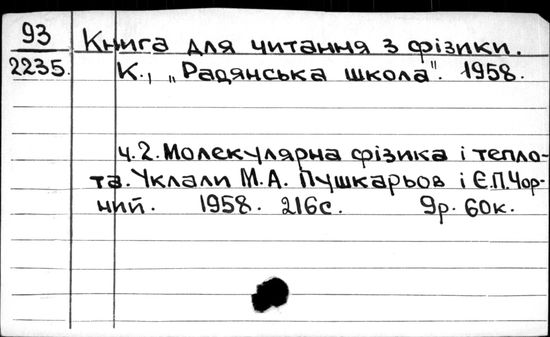 93 Книга для читання з фізики.
2235. К., „Радянська школа". 1958.
ч.2. Молекулярна фізика і тепло-
та. Уклали М.А. Пушкарьов і Є.П. Чор-
ний. 1958. 216с. 9р. 60к.